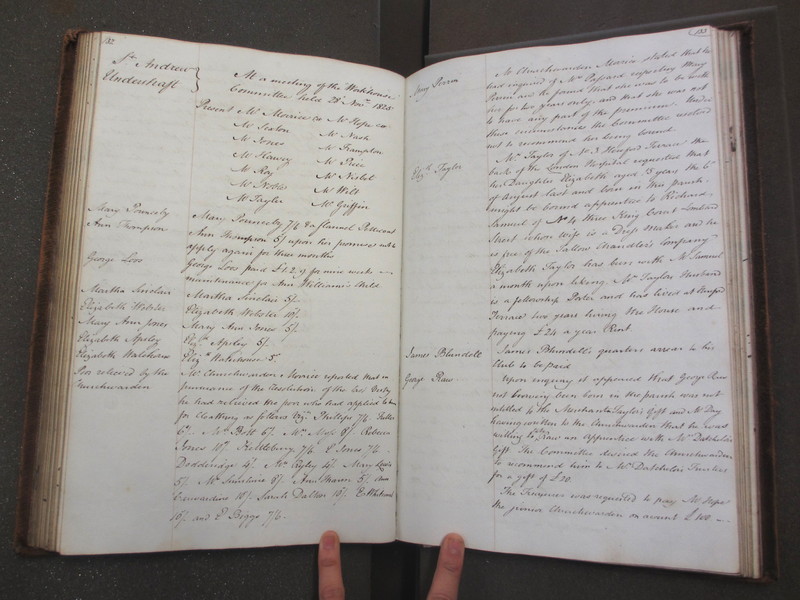 132
St. Andrew
Undershaft
At a meeting of the Workhouse
Committee held 28 Novr. 1825
Present Mr Morrice CW Mr Hope CW
Mr Sexton Mr Nash
Mr Jones Mr Frampton
Mr Harvey Mr Price
Mr Roy Mr Nisbet
Mr Nobles Mr Wilt
Mr Tayler Mr Griffin
Mary Ponnerby Mary Ponnerby 7/6 & a flannel Petticoat
Ann Thompson Ann Thompson 5/ upon her promise not to
apply again for three months
George Loos George Loos paid £1.2.9 for nine weeks
maintenance for Ann William's Child
Martha Sinclair Martha Sinclair 5/.
Elizabeth Webster Elizabeth Webster 10/.
Mary Ann Jones Mary Ann Jones 5/.
Elizabeth Apsley Eliz.h Apsley 5/.
Elizabeth Waterhouse Eliz.h Waterhouse 5/.
Poor relieved by the
Churchwarden
Mr Churchwarden Morrice reported that in
pursuance of the Resolution of the last Vestry
he had relieved the poor who had applied to him
for Cloathing as follows viz. Phillips 7/6
6/. Mrs Bolt 6/. Mrs Moss 8/. Rebecca
Jones 10/. Kettlebury 7/6 E Jones 7/6
Doddridge 4/. Mrs Ryley 4/. Mary Lewis
5/. Mr Sinclaire 8/. Ann Mann 5/.
10/. Sarah Dallow 10/.
10/. and E Biggs 7/6.
133
Mary Perrin
Mr Churchwarden Morrice stated that he
had enquired of Mrs Passard respecting Mary
Perrin and he found that she was to be with
her for two years only and that she was not
to have any part of the premium. Under
these circumstances the Committee resolved
not to recommend her being bound.
Eliz.h Taylor
Mrs Taylor of No 3 Hanford Terrace the
back of the London Hospital requested that
her Daughter Elizabeth aged 15 years the 6th
of August last and born in this parish
might be bound apprentice to Richard
Samuel of No 4 Three King Court Lombard
Street whose wife is a Dress maker and he
is free of the Tallow Chandler's Company
Elizabeth Taylor has been with Mr Samuel
a month upon liking. Mrs Taylors Husband
is a fellowship Porter and has lived at Hanford
Terrace two years having the House and
paying £24 a year Rent.
James Blundell James Blundell's quarters arrear to his
Club to be paid
George Raw Upon enquiry it appeared that George Raw
not having been born in the parish was not
entitled to the Merchant Taylor's Gift and Mr Day
having written to the Churchwarden that he was
willing to Raw an Apprentice with Mr Datchelor's
Gift. The Committee desired the Churchwardens
to recommend him to Mr Datchelor's Trustees
for a gift of £20.
The Treasurer was requested to pay Mr Hope
the junior Churchwarden on account £100